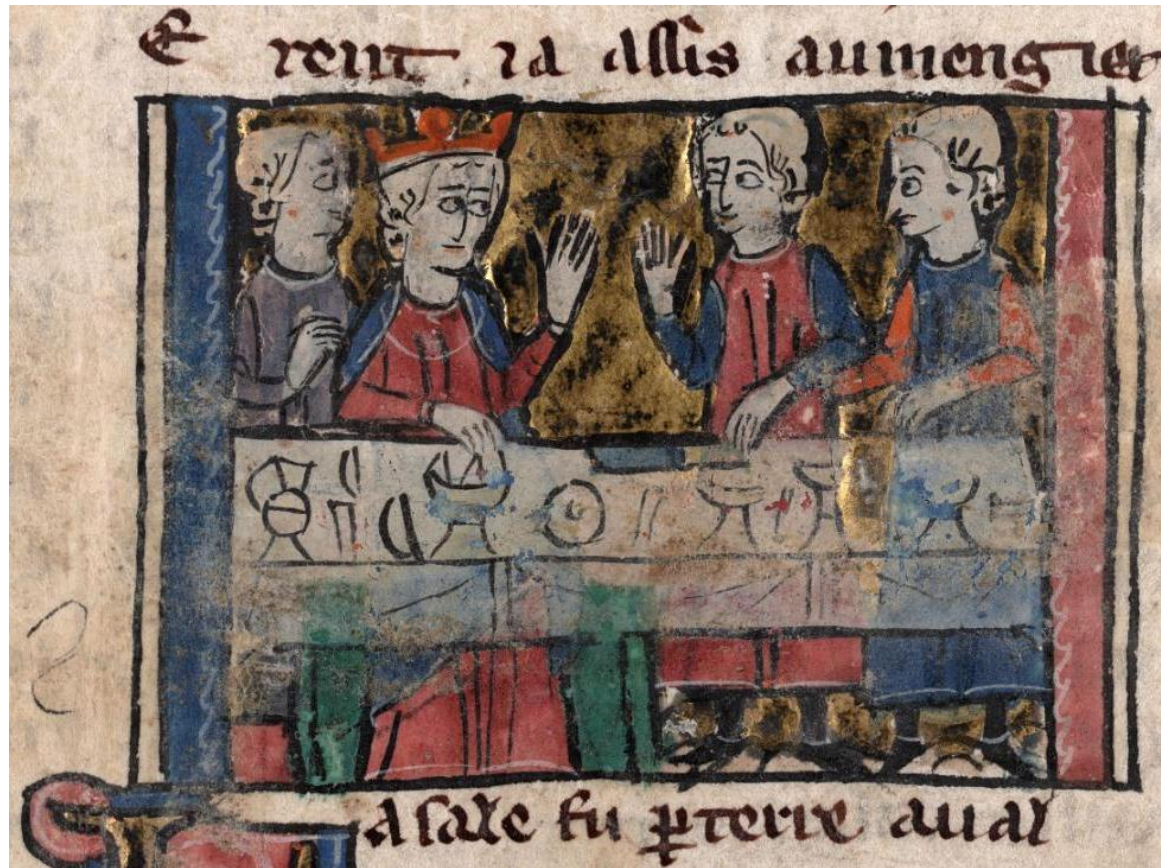 E rent ia assis aumengier
La sale fu ꝑ terre aual